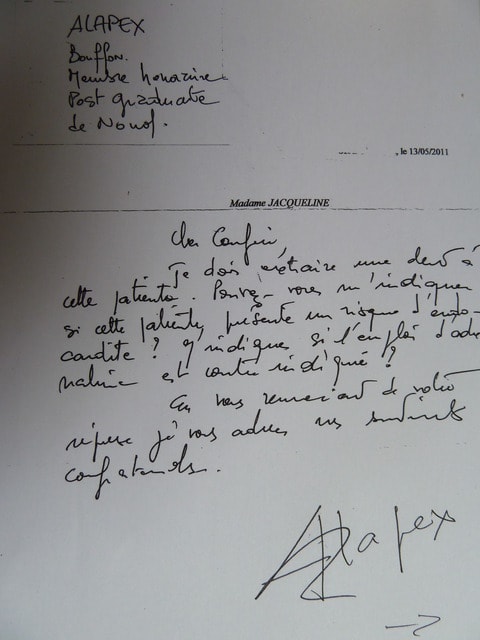 ALAPEX
Bouffon.
Membre honoraire
Post graduate
de Nonol.
, le 13/05/2011
Madame JACQUELINE
Cher Confrère,
Je dois extraire une dent à
cette patiente. Pouvez-vous m'indiquer
si cette patiente présente un risque d'endo-
cardite ? M'indiquer si l'emploi d'adré
naline est contre indiqué ?
En vous remerciant de votre
réponse je vous adresse mes sentiments
confraternels.
Alapex